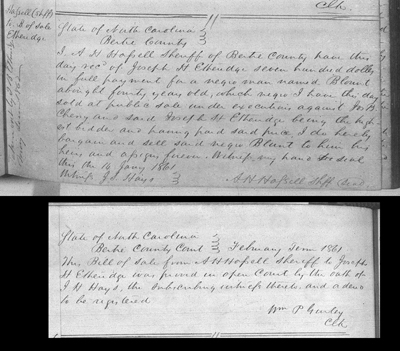 Clk.
Hassell (Shff)
to B of Sale
Etheridge
State of North Carolina
Bertie County
I A. H. Hassell Sheriff of Bertie County have this
day recd of Joseph H Etheridge seven hundred dollars
in full payment for a negro man named Blount
abought fourty years old, which negro I have this day
sold at public sale under executions against
and said Joseph H Etheridge being the high
est bidder and having paid said price I do hereby
bargain and sell said negro Blunt to him his
heirs and assigns forever. Witness my hand & seal
this the 14 Jany 1861
Witness J. H. Hays
A. H. Hassell Shff Seal
State of North Carolina
Bertie County Court
February Term 1861
This Bill of Sale from A H Hassell Sheriff to Joseph
H Etheridge was proved in open Court by the oath of
J. H. Hays, the Subscribing witness thereto and ordered
to be registered
Wm P Gurley
Clk.